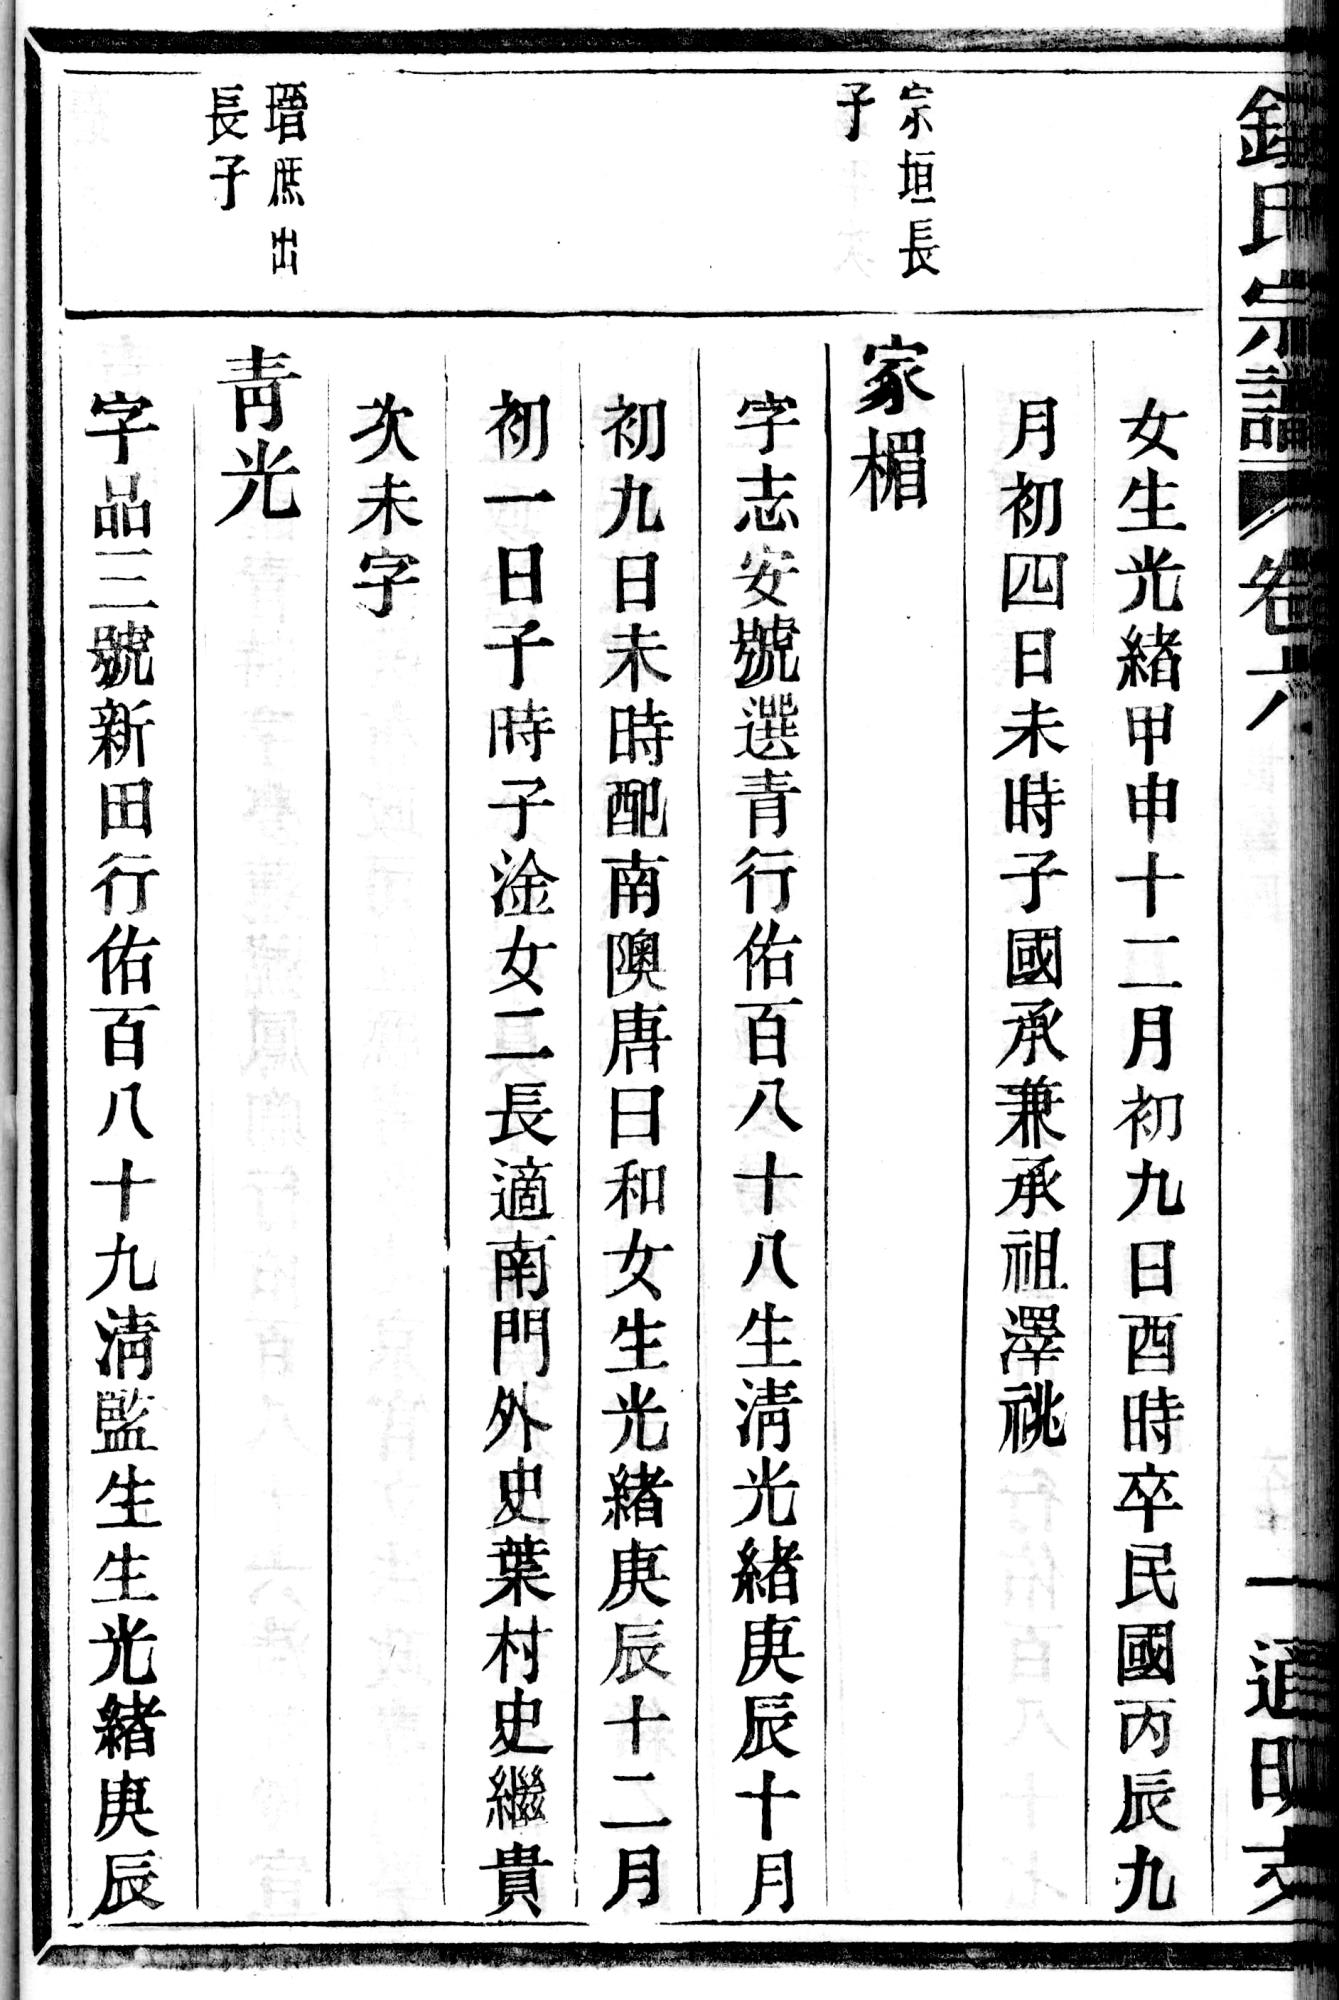 氏宗譜 卷六 一
女生光緒甲申十二月初九日酉時卒民國丙辰九
月初四日未時子國承兼承祖澤祧
宗垣長
子
家楣
字志安號選青行佑百八十八生淸光緒庚辰十月
初九日未時配南隩唐日和女生光緒庚辰十二月
初一日子時子淦女二長適南門外史葉村史繼貴
次未字
瑨庶出
長子
靑光
字品三號新田行佑百八十九淸監生生光緒庚辰